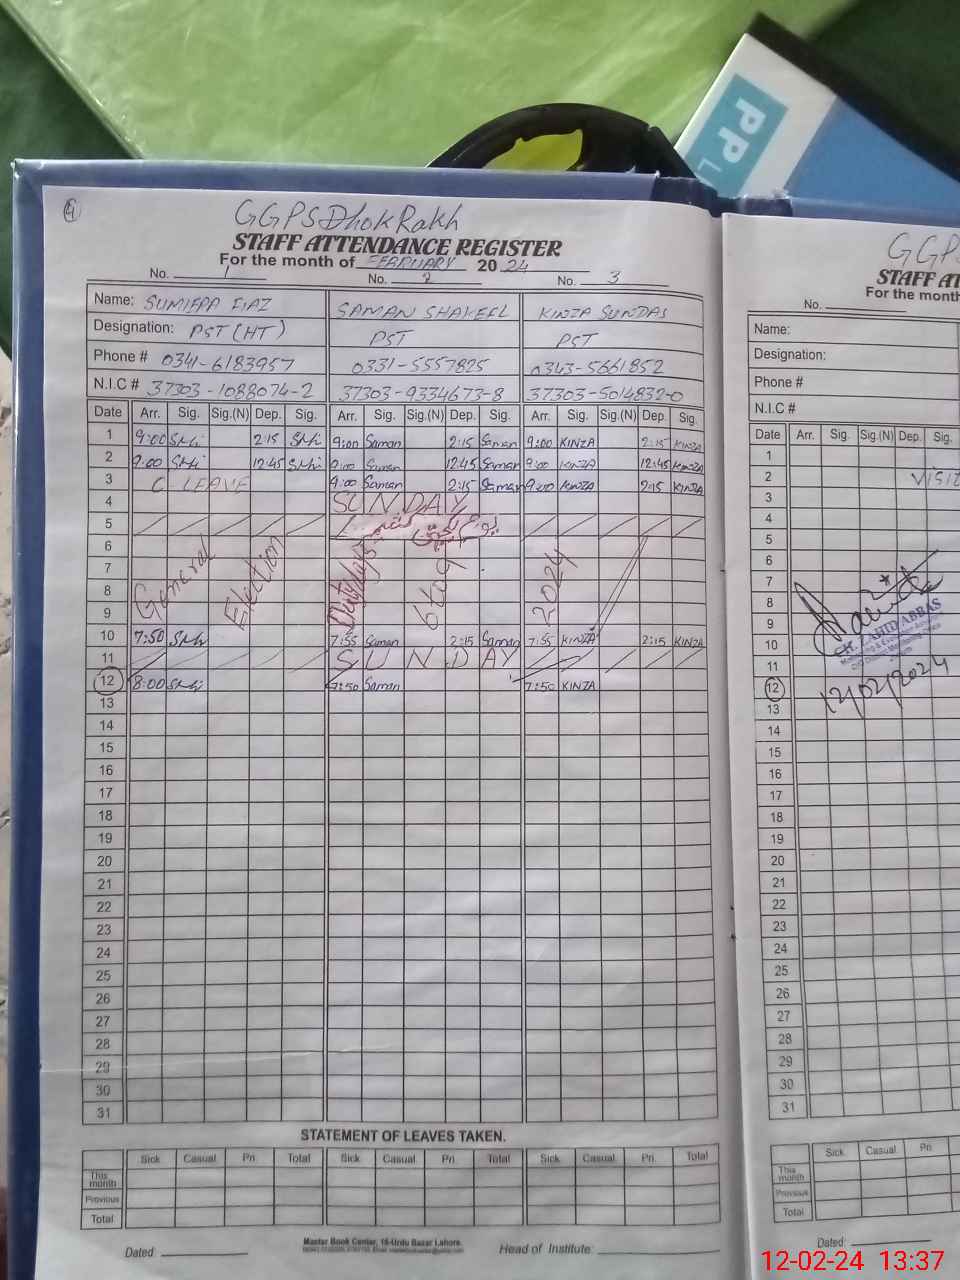 4
GGPS Dhok Rakh
STAFF ATTENDANCE REGISTER
For the month of FEBRUARY 2024
No. 1 No. 2 No. 3
Name: SUMIERA FIAZ SAMAN SHAKEEL KINZA SUNDAS
Designation: PST (HT) PST PST
Phone # 0341-6183957 0331-5557825 0343-5661852
N.I.C # 37303-1088074-2 37303-9334673-8 37303-5014832-0
Date Arr. Sig. Sig.(N) Dep. Sig. Arr. Sig. Sig.(N) Dep. Sig. Arr. Sig. Sig.(N) Dep. Sig.
1 9:00 2:15 9:00 Saman 2:15 Saman 9:00 KINZA 2:15 KINZA
2 9:00 12:45 9:00 Saman 12:45 Saman 9:00 KINZA 12:45 KINZA
3 C LEAVE 9:00 Saman 2:15 Saman 9:00 KINZA 2:15 KINZA
4 SUNDAY
5
6
7
8 General Election 6to9 2024
9
10 7:50 7:55 Saman 2:15 Saman 7:55 KINZA 2:15 KINZA
11 SUNDAY
12 8:00 7:50 Saman 7:50 KINZA
13
14
15
16
17
18
19
20
21
22
23
24
25
26
27
28
29
30
31
STATEMENT OF LEAVES TAKEN.
Sick Casual Pri. Total Sick Casual Pri. Total Sick Casual Pri. Total
This month
Previous
Total
Master Book Center, 16-Urdu Bazar Lahore.
Dated: Head of Institute:
GGP
STAFF AT
For the month
No.
Name:
Designation:
Phone #
N.I.C #
Date Arr. Sig. Sig.(N) Dep. Sig.
1
2 VISIT
3
4
5
6
7
8
9
10
11
12
13
14
15
16
17
18
19
20
21
22
23
24
25
26
27
28
29
30
31
12/02/2024
Sick Casual Pri.
This month
Previous
Total
Dated:
PP L
12-02-24 13:37